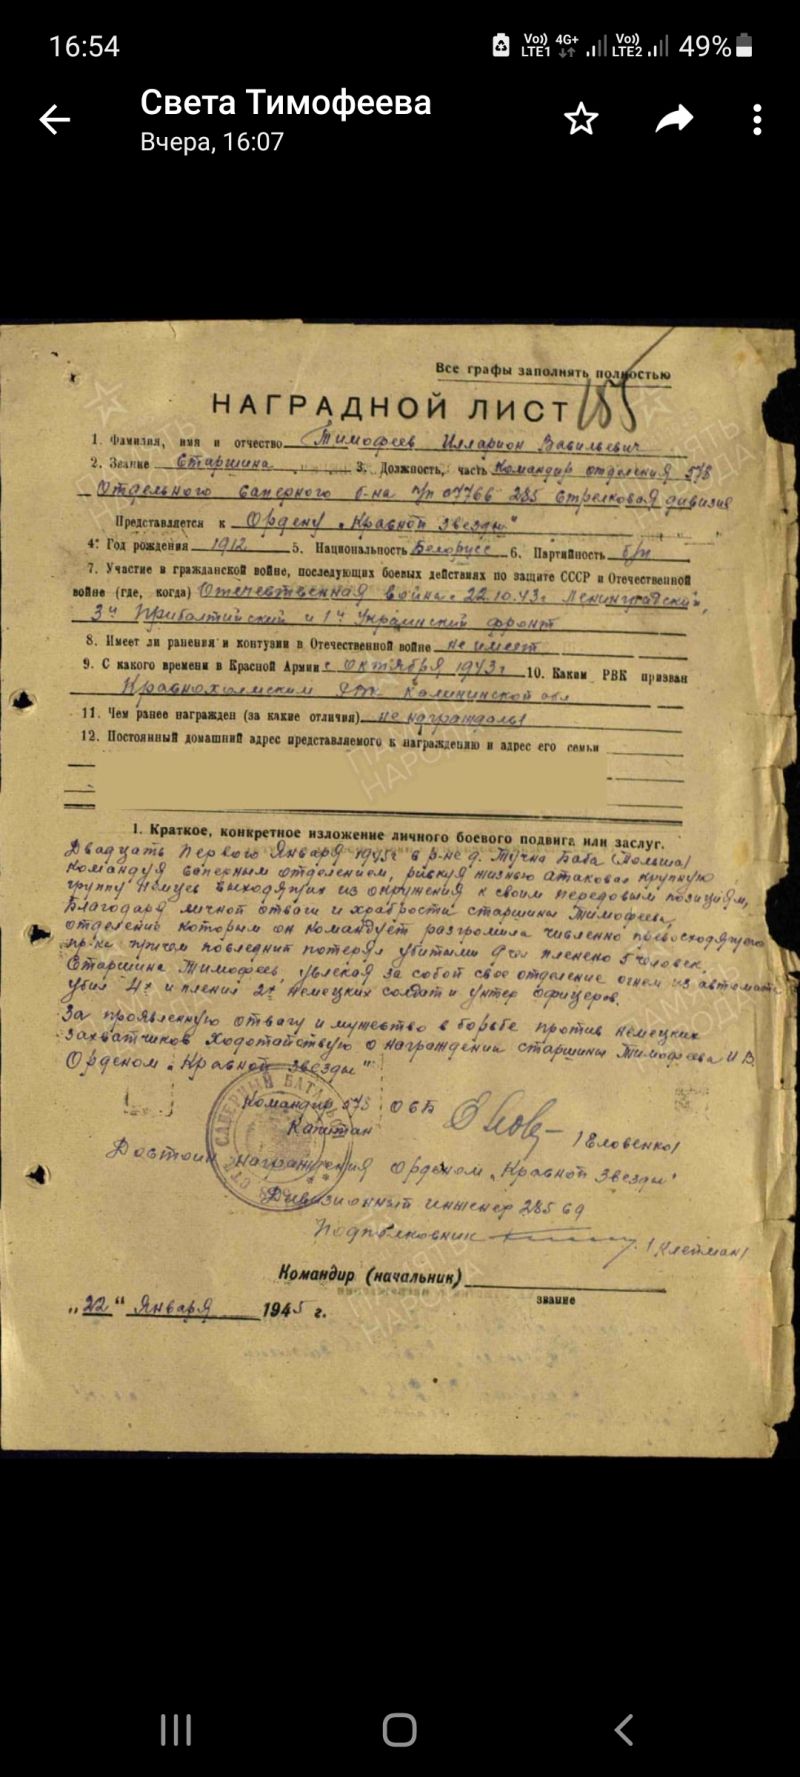 16:54
Vo)) LTE1 4G+ Vo)) LTE2 49%
Света Тимофеева
Вчера, 16:07
Все графы заполнять полностью
НАГРАДНОЙ ЛИСТ 185
1. Фамилия, имя и отчество Тимофеев Илларион Вавильевич
2. Звание Старшина 3. Должность, часть Командир отделения 578
Отдельного саперного б-на п/п 07766 285 Стрелковая дивизия
Представляется к Ордену „Красной Звезды"
4. Год рождения 1912 5. Национальность Белорусс 6. Партийность б/п
7. Участие в гражданской войне, последующих боевых действиях по защите СССР и Отечественной
войне (где, когда) Отечественная война с 22.10.43г Ленинградский,
3й Прибалтийский и 1й Украинский фронт
8. Имеет ли ранения и контузии в Отечественной войне не имеет
9. С какого времени в Красной Армии с октября 1943г 10. Каким РВК призван
Краснохолмским Калининской обл
11. Чем ранее награжден (за какие отличия) не награждался
12. Постоянный домашний адрес представляемого к награждению и адрес его семьи
1. Краткое, конкретное изложение личного боевого подвига или заслуг.
Двадцать Первого Января 1945г в р-не д. Тучна Баба (Польша)
Командуя саперным отделением, рискуя жизнью атаковал крупную
группу Немцев выходящих из окружения к своим передовым позициям,
Благодаря личной отваги и храбрости старшины Тимофеева,
отделение которым он командует разгромила численно превосходящего
пр-ка причем последний потерял убитыми 9 чел пленено 5 человек.
Старшина Тимофеев, увлекая за собой свое отделение огнем из автомата
убил 4х и пленил 2х немецких солдат и унтер офицеров.
За проявленную отвагу и мужество в борьбе против немецких
захватчиков Ходотайствую о награждении старшины Тимофеева И.В.
Орденом „Красной Звезды"
Командир 578 ОСБ
Капитан /Еловенко/
Достоин награждения Орденом „Красной Звезды"
Дивизионный инженер 285 сд
Подполковник /Клетман/
Командир (начальник)
звание
„22" Января 1945 г.